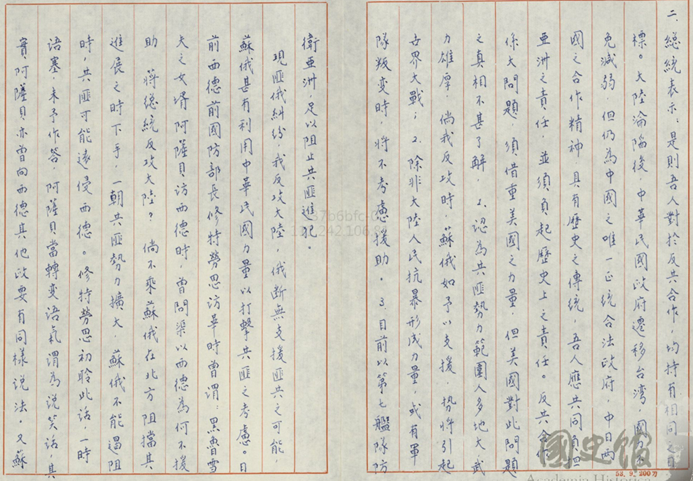 二、總統表示，是則吾人對於反共合作，均持有相同之目
標。大陸淪陷後，中華民國政府遷移台灣，國
免減弱，但仍為中國之唯一正統合法政府，中日兩
國之合作精神，具有歷史之傳統，吾人應共同負
亞洲之責任，並須負起歷史上之責任。反共合作
係大問題，須借重美國之力量，但美國對此問題
之真相不甚了解，1.認為共匪勢力範圍人多地大武
力雄厚，倘我反攻時，蘇俄如予以支援，勢將引起
世界大戰；2.除非大陸人民抗暴形成力量，或有軍
隊叛變時，將不考慮援助。3.目前以第七艦隊防
衛亞洲，足以阻止共匪進犯。
現匪俄糾紛，我反攻大陸，俄斷無支援匪共之可能，
蘇俄甚有利用中華民國力量以打擊共匪之考慮。日
前西德前國防部長修特勞思訪華時曾謂：黑魯雪
夫之女壻阿薩貝訪西德時，曾問渠以西德為何不援
助 蔣總統反攻大陸？倘不乘蘇俄在北方阻擋其
進展之時下手，一朝共匪勢力擴大，蘇俄不能遏阻
時，共匪可能遠侵西德。修特勞思初聆此話，一時
語塞，未予作答，阿薩貝當轉變語氣謂為說笑話，其
實阿薩貝亦曾向西德其他政要有同樣說法。又蘇
國史館
Academia Historica